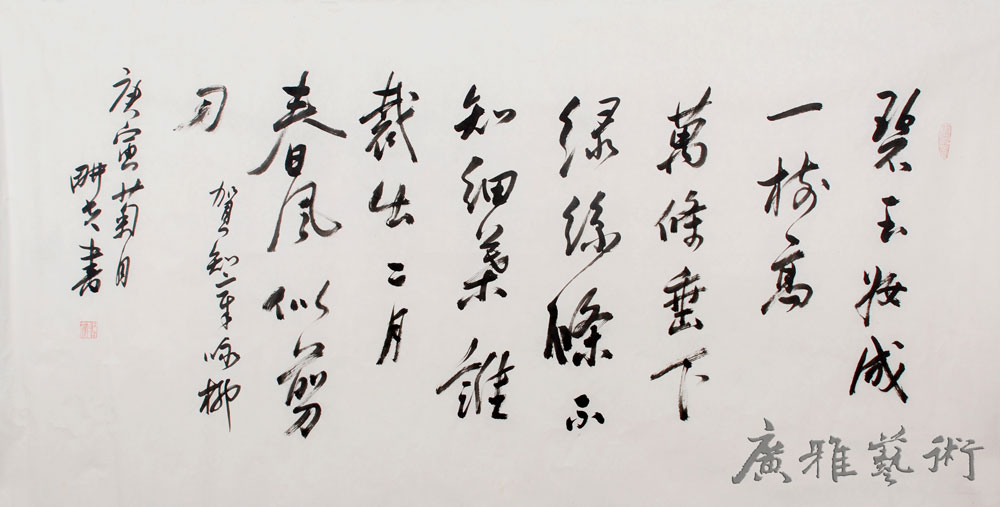 碧玉妝成
一樹高
萬條垂下
绿絲縧不
知細葉誰
裁出二月
春風似剪
刀
賀知章咏柳
庚寅菊月
畊書
廣雅藝術